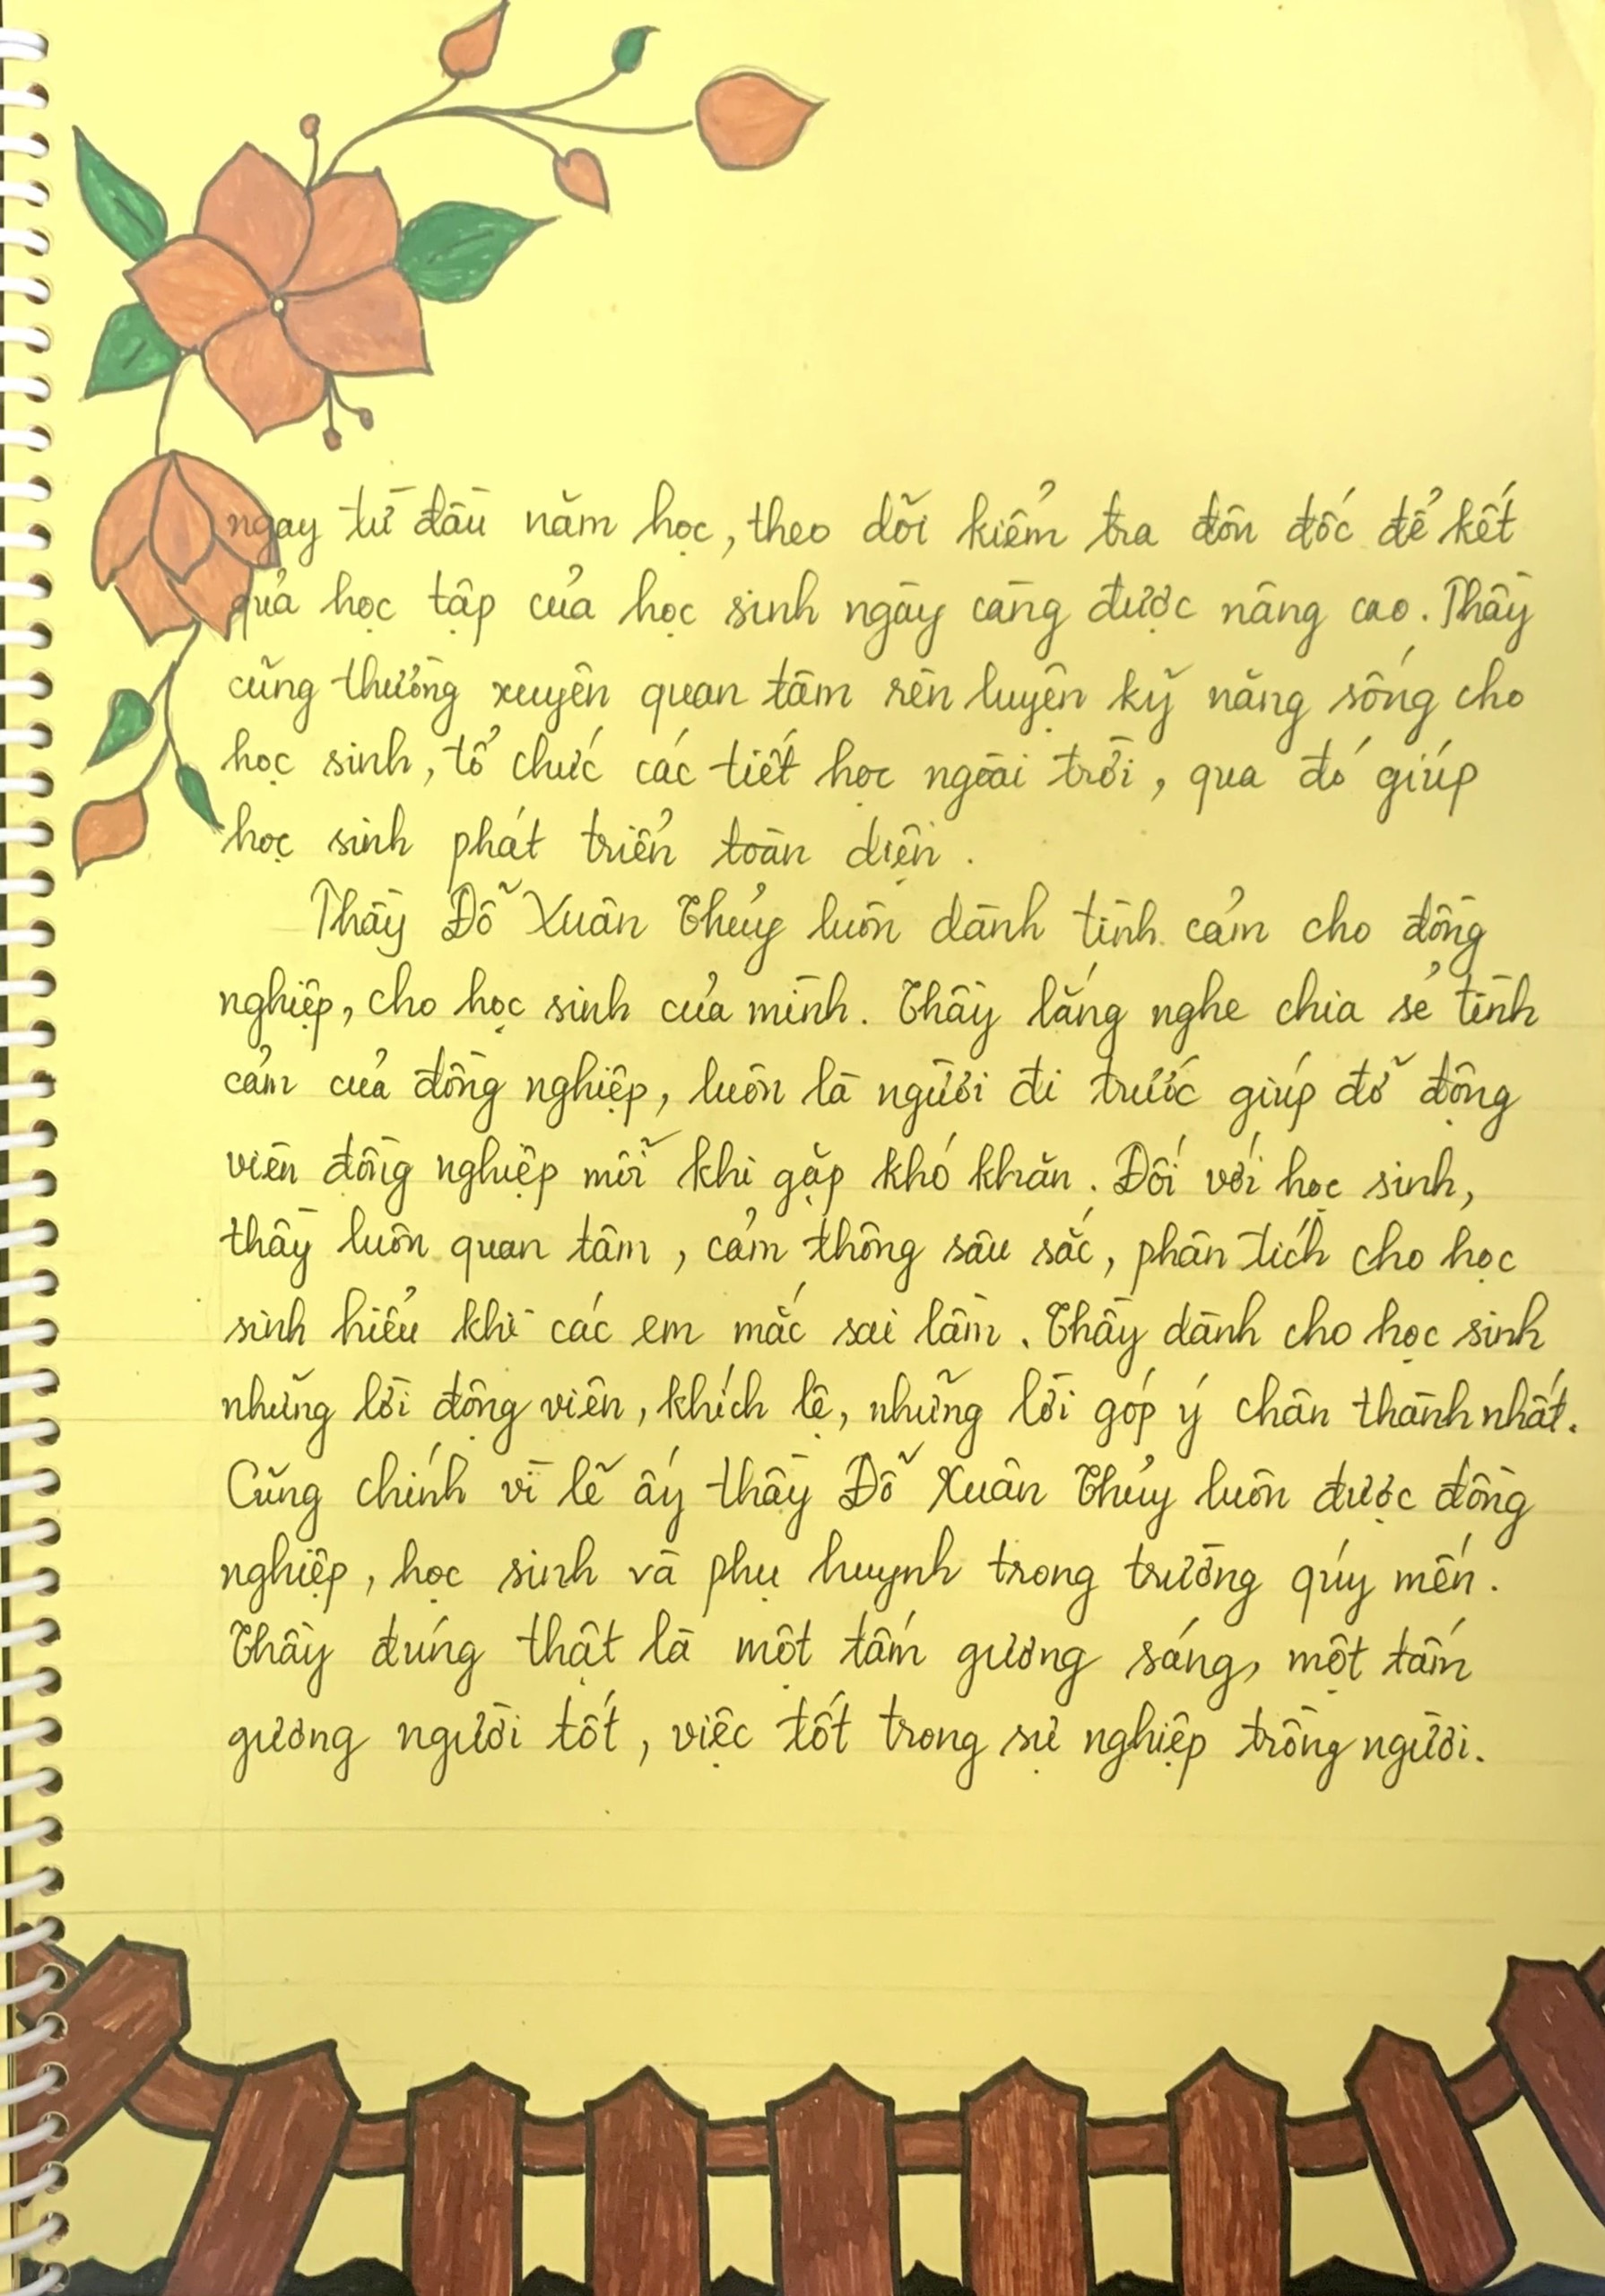 ngay từ đầu năm học, theo dõi kiểm tra đôn đốc để kết
quả học tập của học sinh ngày càng được nâng cao. Thầy
cũng thường xuyên quan tâm rèn luyện kỹ năng sống cho
học sinh, tổ chức các tiết học ngoài trời, qua đó giúp
học sinh phát triển toàn diện.
Thầy Đỗ Xuân Thủy luôn dành tình cảm cho đồng
nghiệp, cho học sinh của mình. Thầy lắng nghe chia sẻ tình
cảm của đồng nghiệp, luôn là người đi trước giúp đỡ động
viên đồng nghiệp mỗi khi gặp khó khăn. Đối với học sinh,
thầy luôn quan tâm, cảm thông sâu sắc, phân tích cho học
sinh hiểu khi các em mắc sai lầm. Thầy dành cho học sinh
những lời động viên, khích lệ, những lời góp ý chân thành nhất.
Cũng chính vì lẽ ấy thầy Đỗ Xuân Thủy luôn được đồng
nghiệp, học sinh và phụ huynh trong trường quý mến.
Thầy đúng thật là một tấm gương sáng, một tấm
gương người tốt, việc tốt trong sự nghiệp trồng người.